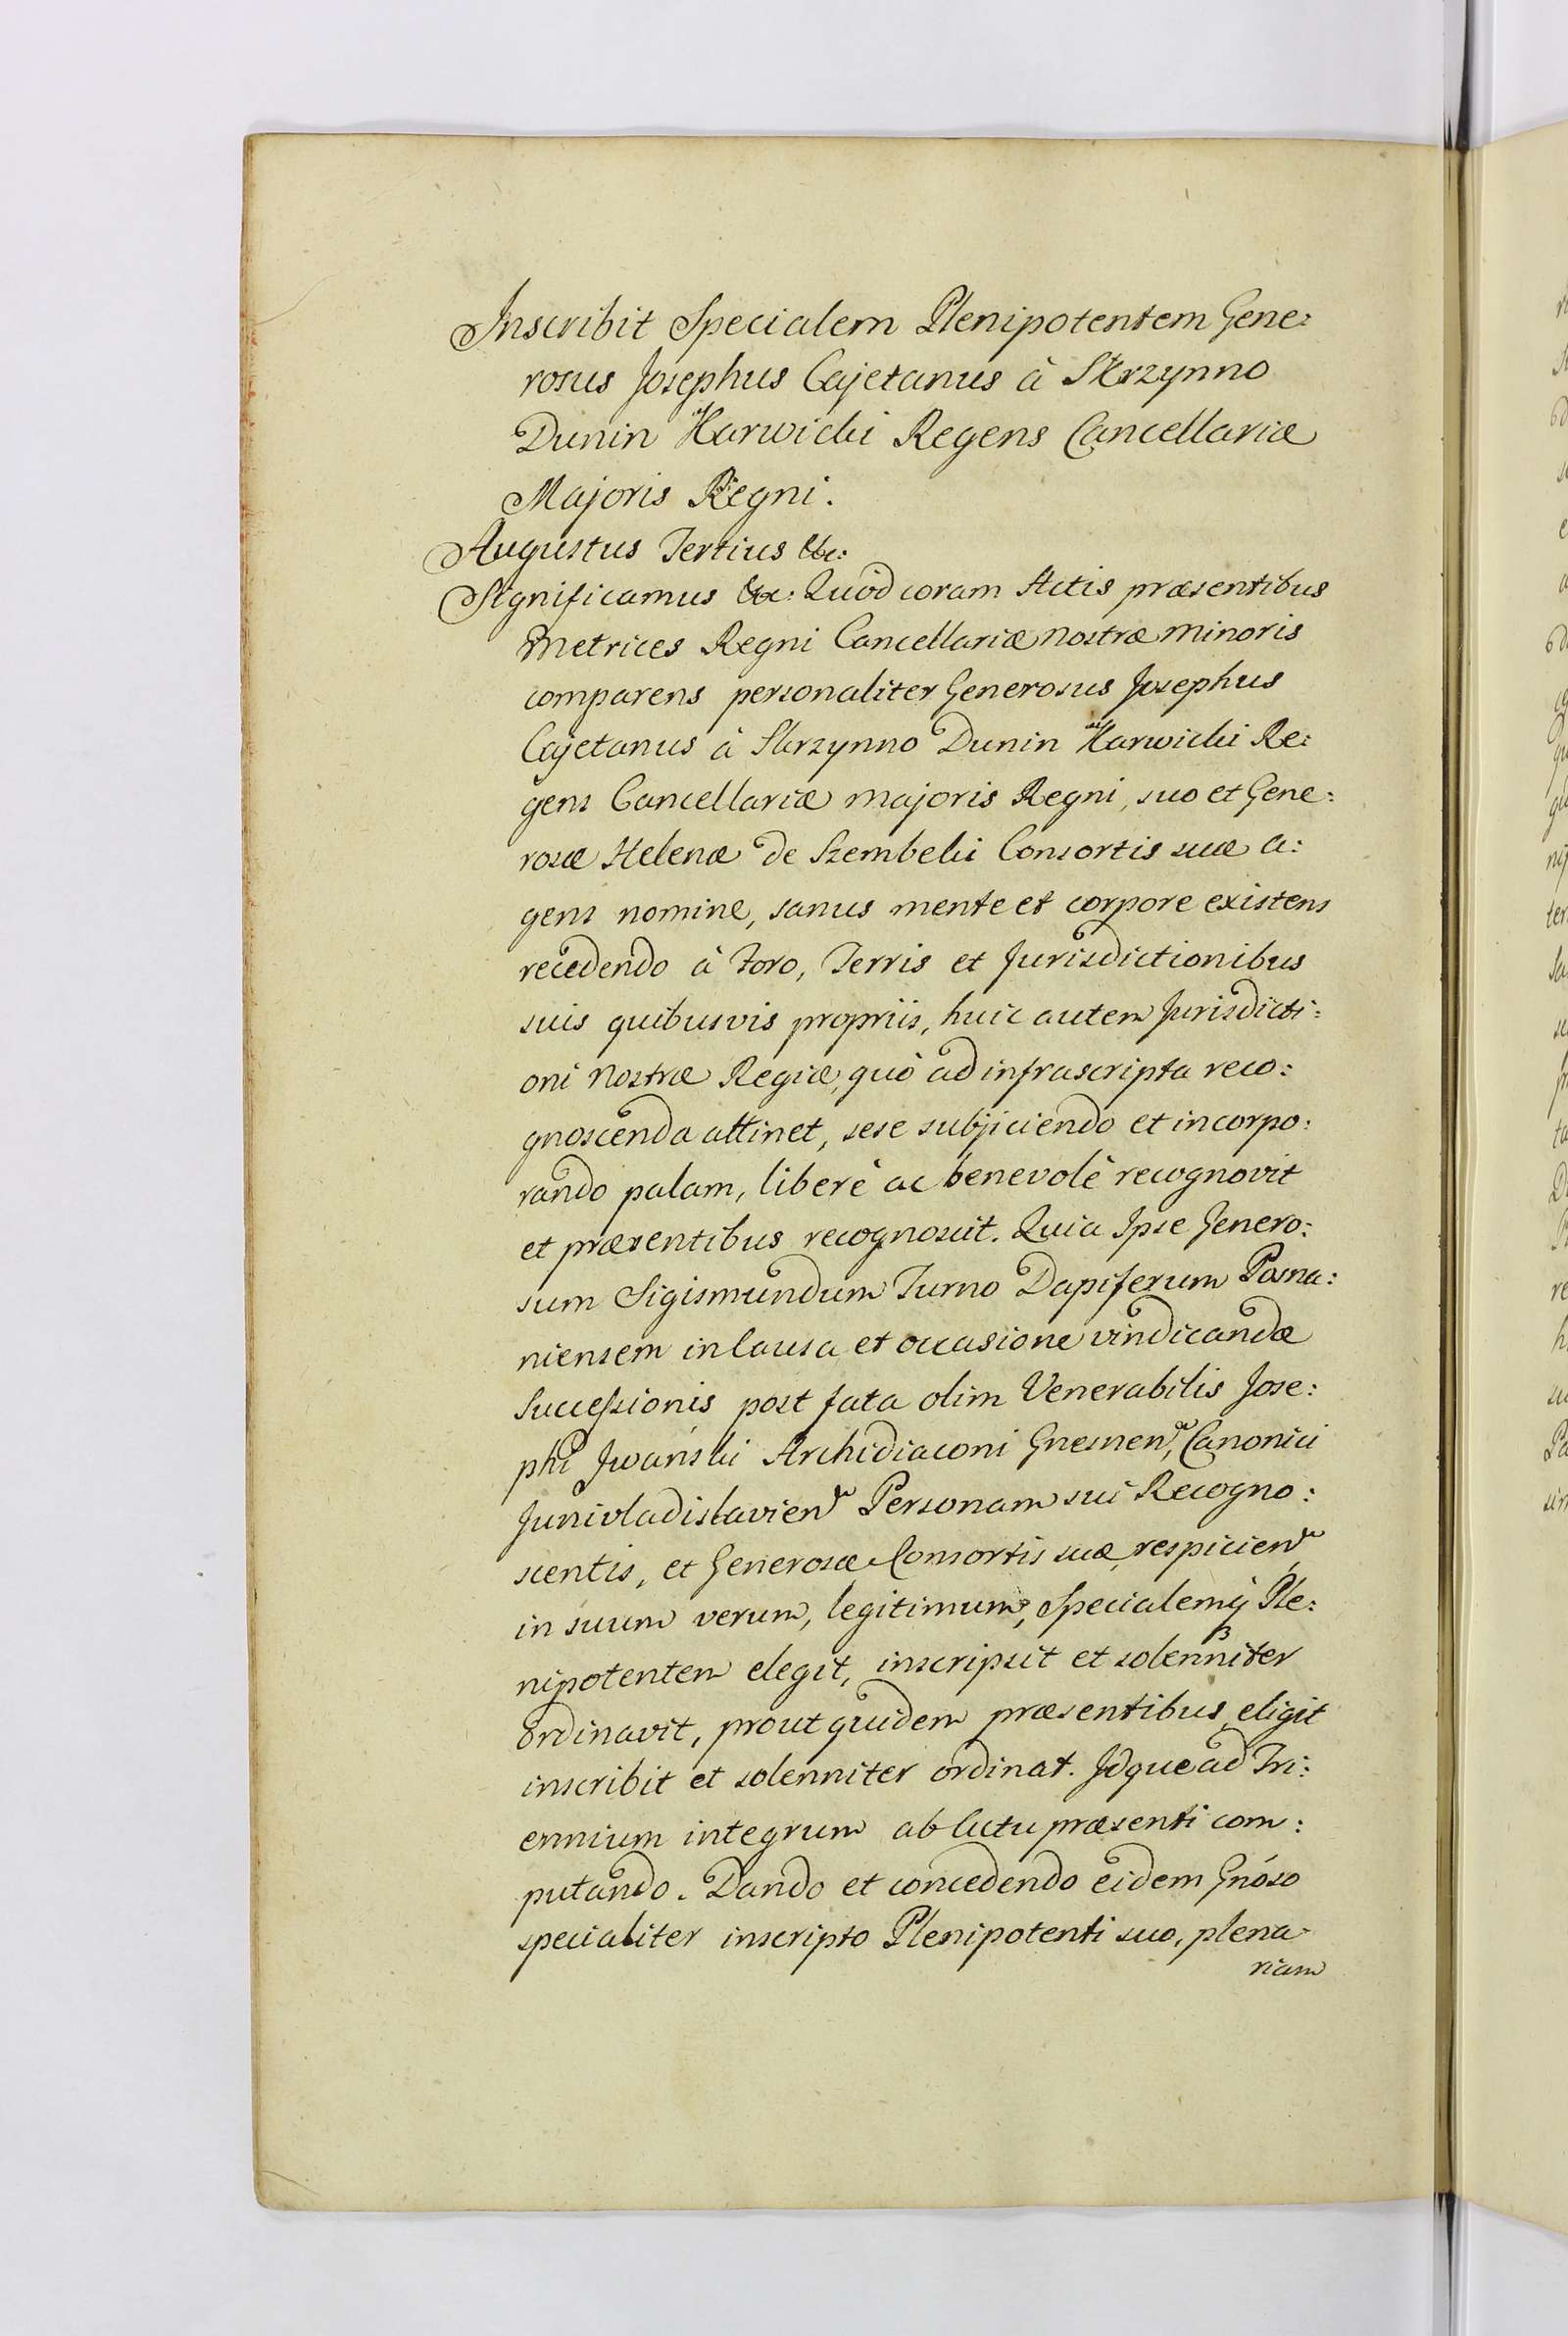 Inscribit Specialem Plenipotentem Gene:
rosus Josephus Cajetanus à Skrzynno
Dunin Karwicki Regens Cancellariæ
Majoris Regni.
Augustus Tertius &c:
Significamus &c: Quòd coram Actis præsentibus
Metrices Regni Cancellariæ nostræ minoris
comparens personaliter Generosus Josephus
Cajetanus à Skrzynno Dunin Karwicki Re:
gens Cancellariæ majoris Regni, suo et Gene:
rosæ Helenæ de Szembeki Consortis suæ a:
gens nomine, sanus mente et corpore existens
recedendo à Foro, Terris et Jurisdictionibus
suis quibusvis propriis, huic autem Jurisdicti:
oni Nostræ Regiæ, quò ad infrascripta reco:
gnoscenda attinet, sese subjiciendo et incorpo:
rando palam, liberè ac benevolè recognovit
et præsentibus recognoscit. Quia Ipse Genero:
sum Sigismundum Turno Dapiferum Posna:
niensem in Causa et occasione vindicandæ
Successionis post fata olim Venerabilis Jose:
phi Jwański Archidiaconi Gnesnen, Canonici
Junivladislavien Personam sui Recogno:
scentis, et Generosæ Consortis suæ, respicien,
in suum verum, legitimum, Specialemq Ple:
nipotentem elegit, inscripsit et solenniter
ordinavit, prout quidem præsentibus eligit
inscribit et solenniter ordinat. Jdque ad Tri:
ennium integrum ab Actu præsenti com:
putando. Dando et concedendo eidem Gnóso
specialiter inscripto Plenipotenti suo, plena
riam